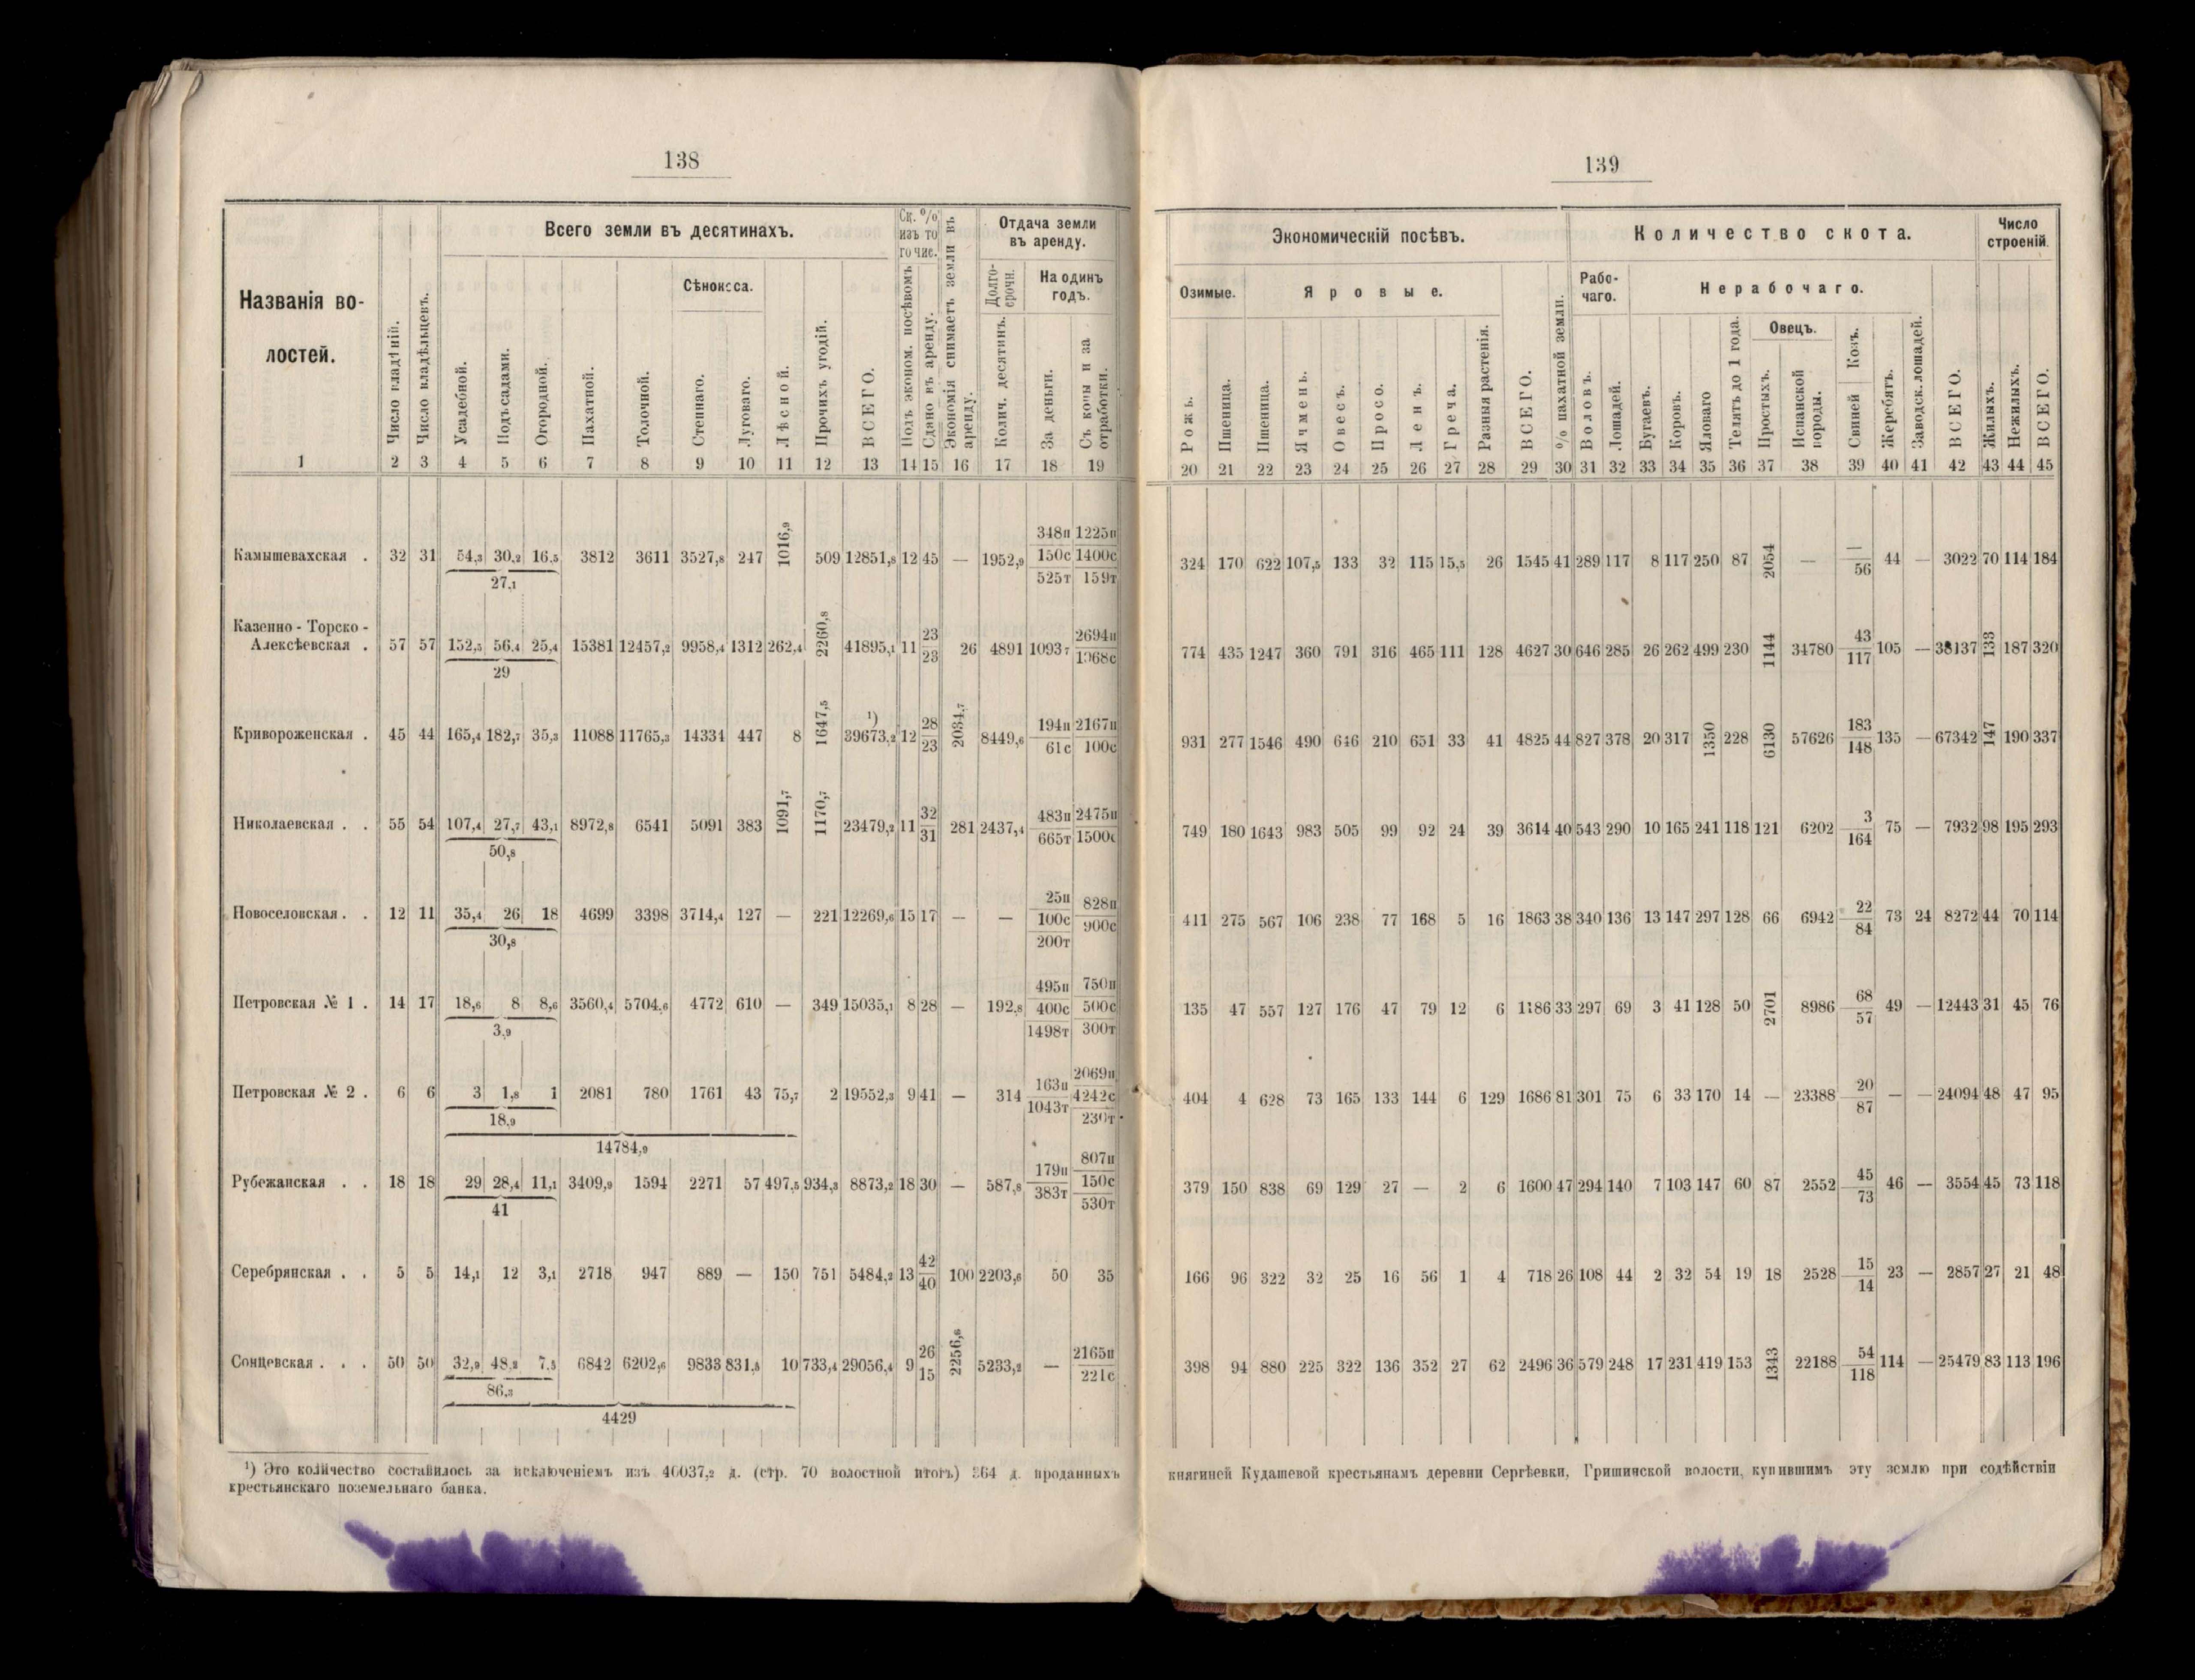 138
Названія во-
лостей.
Число владѣній.
Число владѣльцевъ.
Всего земли въ десятинахъ.
Усадебной.
Подъ садами.
Огородной.
Пахатной.
Толочной.
Сѣнокоса.
Степнаго.
Луговаго.
Лѣсной.
Прочихъ угодій.
ВСЕГО.
Ск. %
изъ то
го чис.
Подъ эконом. посѣвомъ
Сдано въ аренду.
Экономія снимаетъ земли въ
аренду.
Отдача земли
въ аренду.
Долго-
срочн.
Колич. десятинъ.
На одинъ
годъ.
За деньги.
Съ копы и за
отработки.
1 2 3 4 5 6 7 8 9 10 11 12 13 14 15 16 17 18 19
348п 1225п
Камышевахская . 32 31 54,3 30,2 16,5 3812 3611 3527,8 247 1016,9 509 12851,8 12 45 — 1952,9 150с 1400с
27,1 525т 159т
Казенно - Торско -
Алексѣевская . 57 57 152,5 56,4 25,4 15381 12457,2 9958,4 1312 262,4 2260,8 41895,1 11 23/23 26 4891 1093,7 2694п/1968с
29
Кривороженская . 45 44 165,4 182,7 35,3 11088 11765,3 14334 447 8 1647,5 ¹) 39673,2 12 28/23 2034,7 8449,6 194п/61с 2167п/100с
Николаевская . . 55 54 107,4 27,7 43,1 8972,8 6541 5091 383 1091,7 1170,7 23479,2 11 32/31 281 2437,4 483п/665т 2475п/1500с
50,8
Новоселовская . . 12 11 35,4 26 18 4699 3398 3714,4 127 — 221 12269,6 15 17 — — 25п/100с/200т 828п/900с
30,8
Петровская № 1 . 14 17 18,6 8 8,6 3560,4 5704,6 4772 610 — 349 15035,1 8 28 — 192,8 495п/400с/1498т 750п/500с/300т
3,9
Петровская № 2 . 6 6 3 1,8 1 2081 780 1761 43 75,7 2 19552,3 9 41 — 314 163п/1043т 2069п/4242с/230т
18,9
14784,9
Рубежанская . . 18 18 29 28,4 11,1 3409,9 1594 2271 57 497,5 934,3 8873,2 18 30 — 587,8 179п/383т 807п/150с/530т
41
Серебрянская . . 5 5 14,1 12 3,1 2718 947 889 — 150 751 5484,2 13 42/40 100 2203,6 50 35
Сонцевская . . . 50 50 32,9 48,2 7,5 6842 6202,6 9833 831,5 10 733,4 29056,4 9 26/15 2256,6 5233,2 — 2165п/221с
86,3
4429
¹) Это количество составилось за исключеніемъ изъ 40037,2 д. (стр. 70 волостной итогъ) 364 д. проданныхъ
крестьянскаго поземельнаго банка.
139
Экономическій посѣвъ.
Озимые.
Рожь.
Пшеница.
Яровые.
Пшеница.
Ячмень.
Овесъ.
Просо.
Ленъ.
Греча.
Разныя растенія.
ВСЕГО.
% пахатной земли.
Количество скота.
Рабо-
чаго.
Воловъ.
Лошадей.
Нерабочаго.
Бугаевъ.
Коровъ.
Яловаго
Телятъ до 1 года.
Овецъ.
Простыхъ.
Испанской
породы.
Свиней
Козъ.
Жеребятъ.
Заводск. лошадей.
ВСЕГО.
Число
строеній.
Жилыхъ.
Нежилыхъ.
ВСЕГО.
20 21 22 23 24 25 26 27 28 29 30 31 32 33 34 35 36 37 38 39 40 41 42 43 44 45
324 170 622 107,5 133 32 115 15,5 26 1545 41 289 117 8 117 250 87 2054 — —/56 44 — 3022 70 114 184
774 435 1247 360 791 316 465 111 128 4627 30 646 285 26 262 499 230 1144 34780 43/117 105 — 38137 133 187 320
931 277 1546 490 646 210 651 33 41 4825 44 827 378 20 317 1350 228 6130 57626 183/148 135 — 67342 147 190 337
749 180 1643 983 505 99 92 24 39 3614 40 543 290 10 165 241 118 121 6202 3/164 75 — 7932 98 195 293
411 275 567 106 238 77 168 5 16 1863 38 340 136 13 147 297 128 66 6942 22/84 73 24 8272 44 70 114
135 47 557 127 176 47 79 12 6 1186 33 297 69 3 41 128 50 2701 8986 68/57 49 — 12443 31 45 76
404 4 628 73 165 133 144 6 129 1686 81 301 75 6 33 170 14 — 23388 20/87 — — 24094 48 47 95
379 150 838 69 129 27 — 2 6 1600 47 294 140 7 103 147 60 87 2552 45/73 46 — 3554 45 73 118
166 96 322 32 25 16 56 1 4 718 26 108 44 2 32 54 19 18 2528 15/14 23 — 2857 27 21 48
398 94 880 225 322 136 352 27 62 2496 36 579 248 17 231 419 153 1343 22188 54/118 114 — 25479 83 113 196
княгиней Кудашевой крестьянамъ деревни Сергѣевки, Гришинской волости, купившимъ эту землю при содѣйствіи